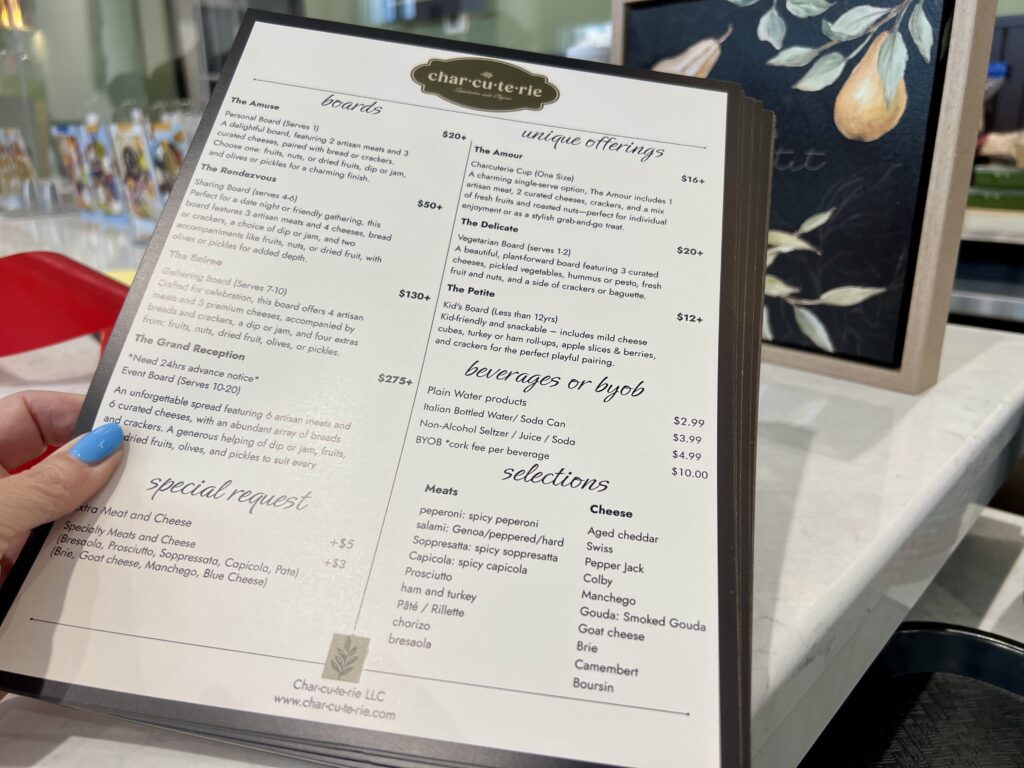 char·cu·te·rie
boards
The Amuse
Personal Board (Serves 1)
$20+
A delightful board, featuring 2 artisan meats and 3
curated cheeses, paired with bread or crackers.
Choose one: fruits, nuts, or dried fruits, dip or jam,
and olives or pickles for a charming finish.
The Rendezvous
Sharing Board (serves 4-6)
$50+
Perfect for a date night or friendly gathering, this
board features 3 artisan meats and 4 cheeses, bread
or crackers, a choice of dip or jam, and two
accompaniments like fruits, nuts, or dried fruit, with
olives or pickles for added depth.
The Soiree
Gathering Board (Serves 7-10)
$130+
Crafted for celebration, this board offers 4 artisan
meats and 5 premium cheeses, accompanied by
breads and crackers, a dip or jam, and four extras
from: fruits, nuts, dried fruit, olives, or pickles.
The Grand Reception
*Need 24hrs advance notice*
$275+
Event Board (Serves 10-20)
An unforgettable spread featuring 6 artisan meats and
6 curated cheeses, with an abundant array of breads
and crackers. A generous helping of dip or jam, fruits,
dried fruits, olives, and pickles to suit every
special request
Extra Meat and Cheese
+$5
Specialty Meats and Cheese
+$3
(Bresaola, Prosciutto, Soppressata, Capicola, Pate)
(Brie, Goat cheese, Manchego, Blue Cheese)
unique offerings
The Amour
Charcuterie Cup (One Size)
$16+
A charming single-serve option, The Amour includes 1
artisan meat, 2 curated cheeses, crackers, and a mix
of fresh fruits and roasted nuts—perfect for individual
enjoyment or as a stylish grab-and-go treat.
The Delicate
Vegetarian Board (serves 1-2)
$20+
A beautiful, plant-forward board featuring 3 curated
cheeses, pickled vegetables, hummus or pesto, fresh
fruit and nuts, and a side of crackers or baguette.
The Petite
Kid's Board (Less than 12yrs)
$12+
Kid-friendly and snackable – includes mild cheese
cubes, turkey or ham roll-ups, apple slices & berries,
and crackers for the perfect playful pairing.
beverages or byob
Plain Water products
$2.99
Italian Bottled Water/ Soda Can
$3.99
Non-Alcohol Seltzer / Juice / Soda
$4.99
BYOB *cork fee per beverage
$10.00
selections
Meats
peperoni: spicy peperoni
salami: Genoa/peppered/hard
Soppresatta: spicy soppresatta
Capicola: spicy capicola
Prosciutto
ham and turkey
Pâté / Rillette
chorizo
bresaola
Cheese
Aged cheddar
Swiss
Pepper Jack
Colby
Manchego
Gouda: Smoked Gouda
Goat cheese
Brie
Camembert
Boursin
Char-cu-te-rie LLC
www.char-cu-te-rie.com